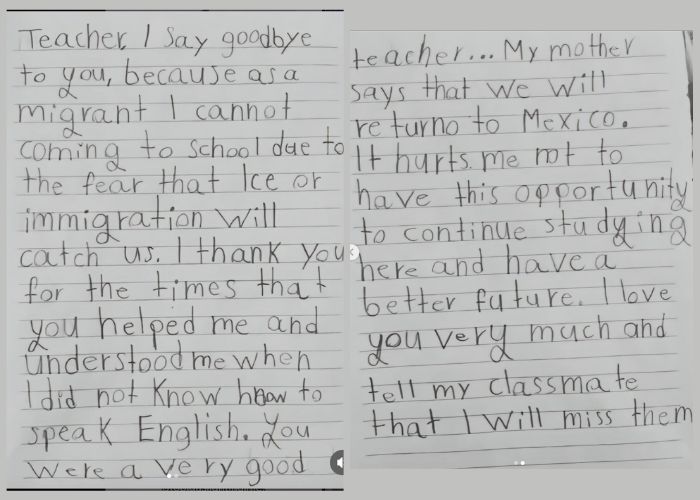 Teacher, I say goodbye
to you, because as a
migrant I cannot
coming to school due to
the fear that Ice or
immigration will
catch us. I thank you
for the times that
you helped me and
understood me when
I did not know how to
speak English. You
were a very good
teacher... My mother
says that we will
returno to Mexico.
It hurts me not to
have this opportunity
to continue studying
here and have a
better future. I love
you very much and
tell my classmate
that I will miss them